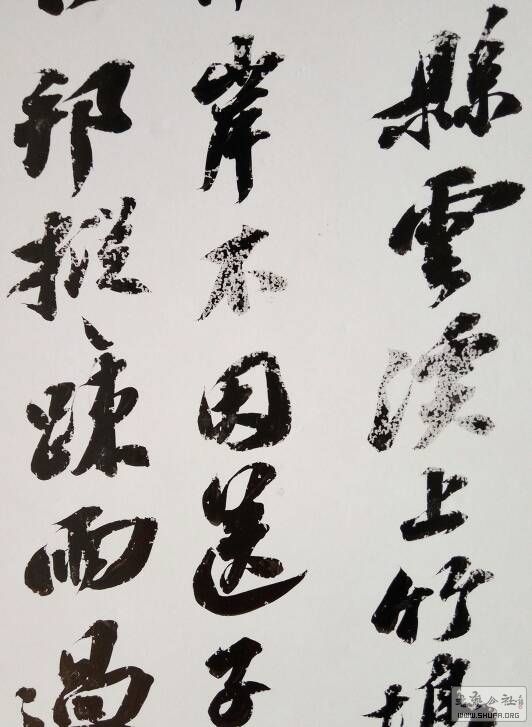 縣雲溪上竹
岸不因送子
踈雨過
书艺公社
WWW.SHUFA.ORG